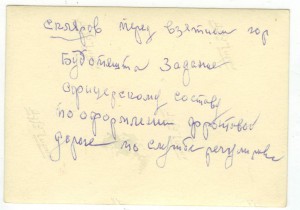 скляров перед взятием гор
Будопешта Задание
офицерскому составу
по оформлению фронтовой
дороге по службе регулиров